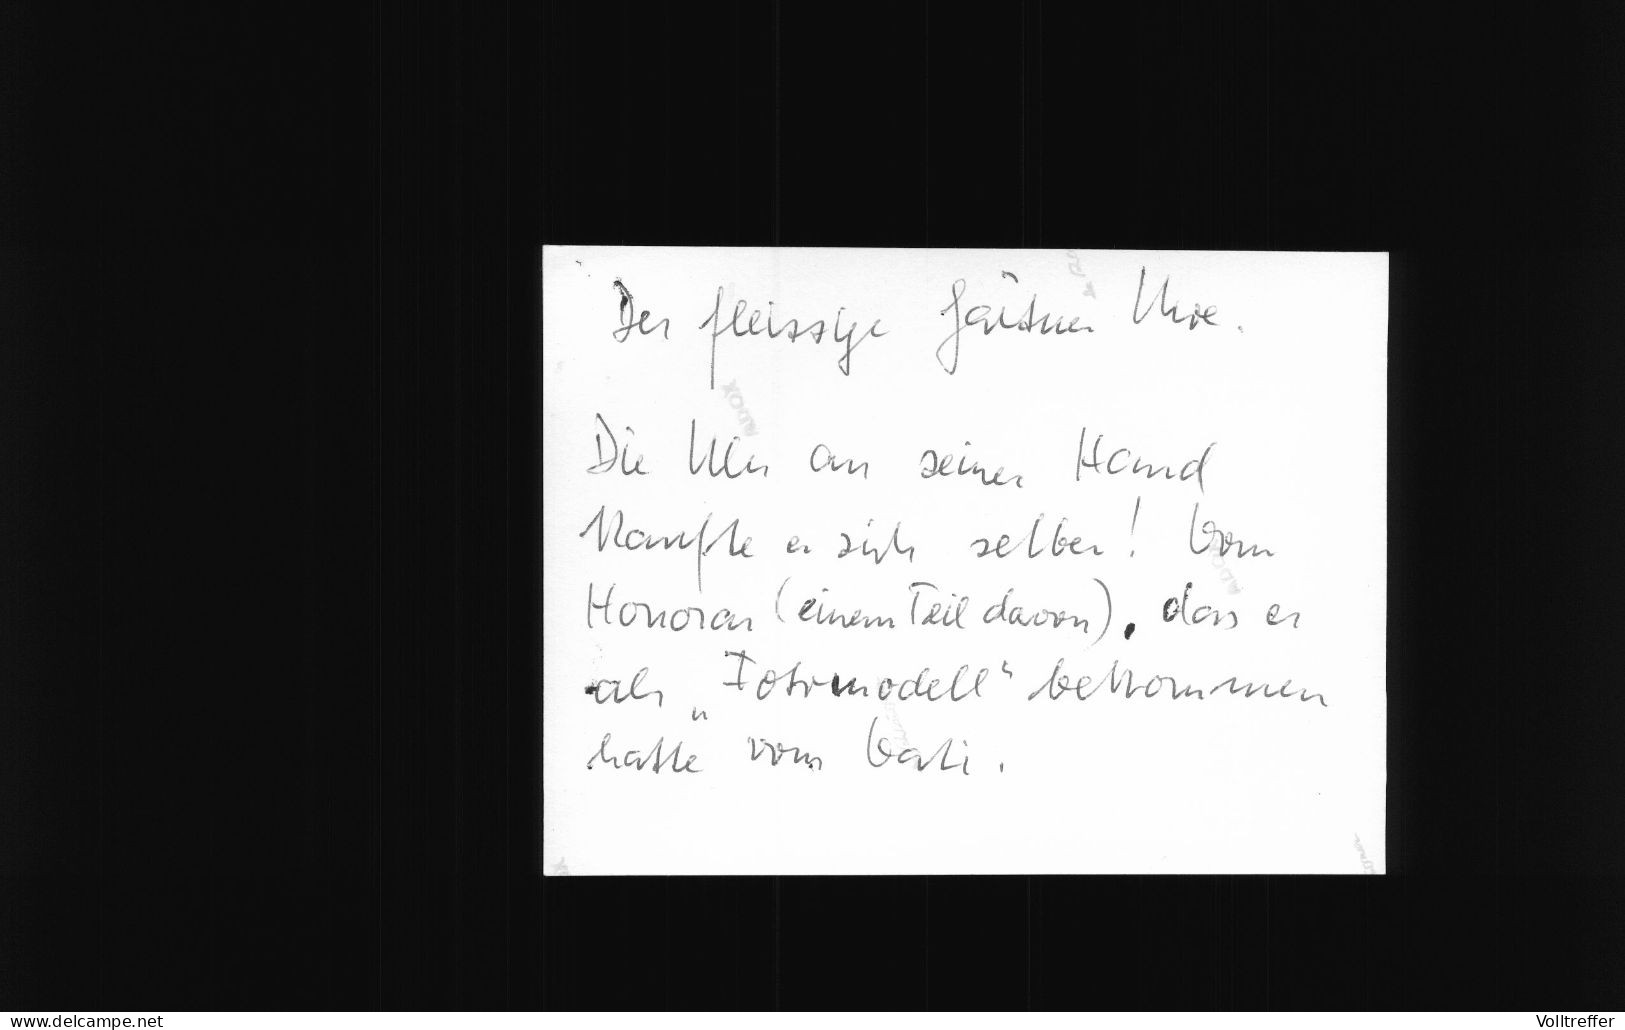 Der fleissige Gärtner Uwe.
Die Uhr an seiner Hand
kaufte er sich selber! Vom
Honorar (einem Teil davon), das er
als „Fotomodell“ bekommen
hatte vom Vati.
ADOX
ADOX
www.delcampe.net
Volltreffer